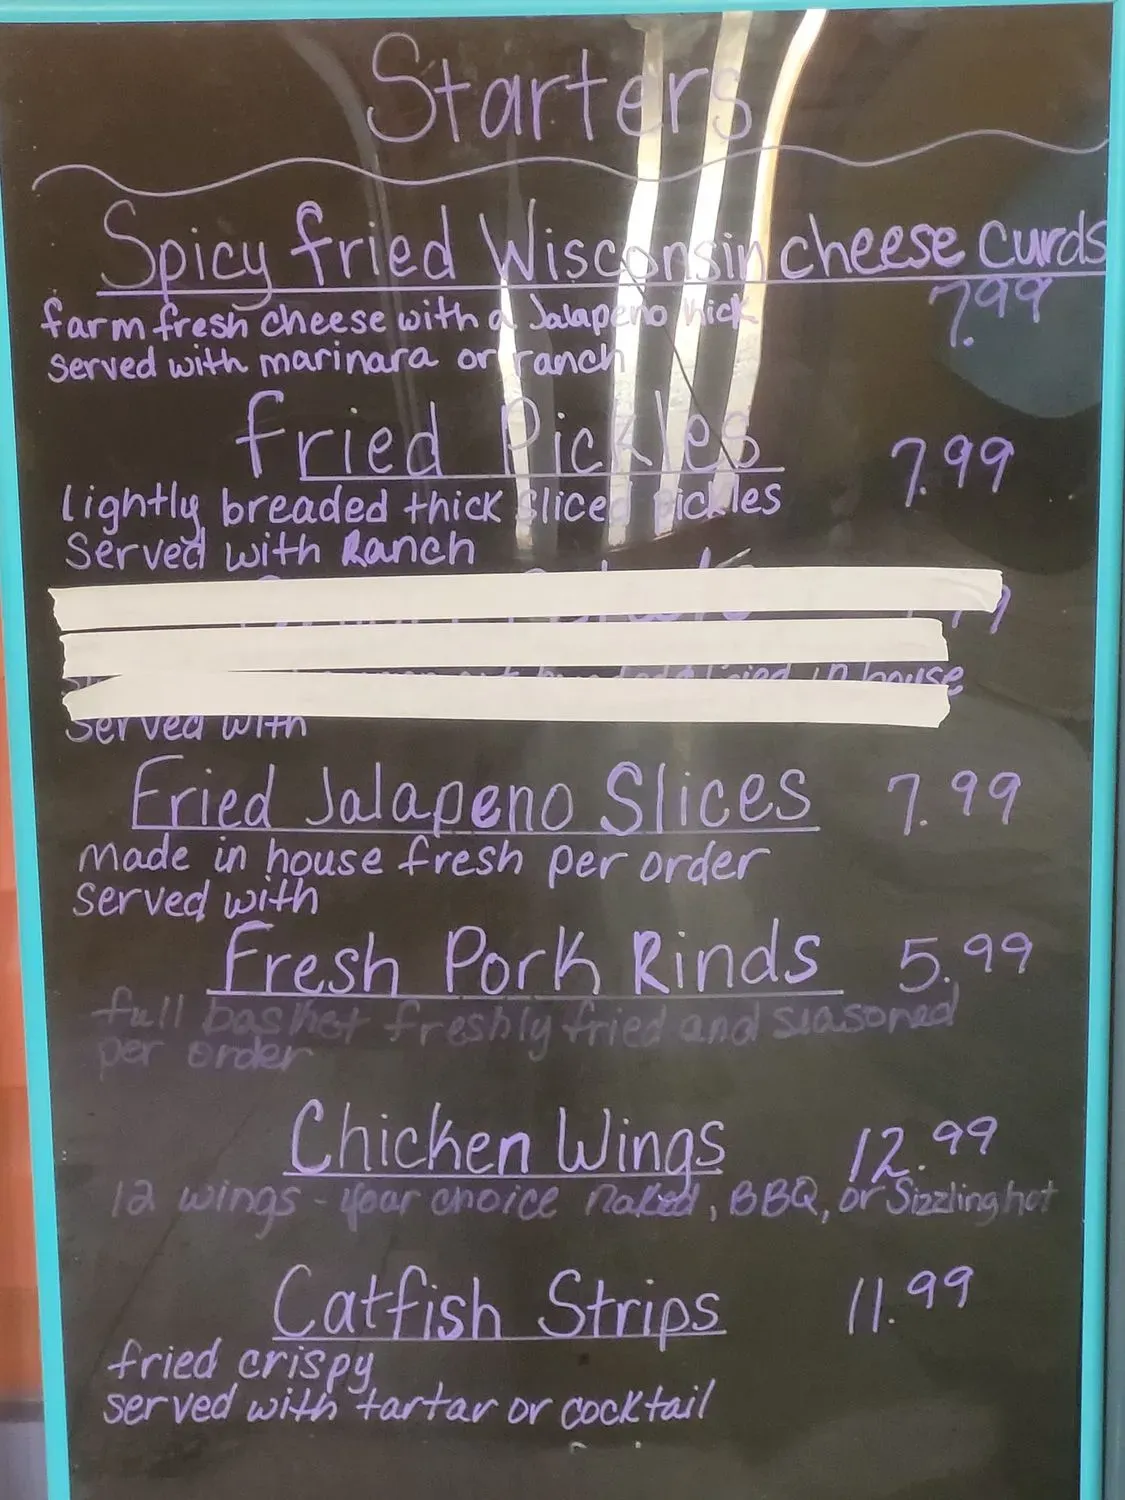 Starters
Spicy fried Wisconsin cheese curds
7.99
farm fresh cheese with a Jalapeno kick
served with marinara or ranch
fried Pickles 7.99
lightly breaded thick sliced pickles
Served with Ranch
in house
served with
Fried Jalapeno Slices 7.99
made in house fresh per order
served with
Fresh Pork Rinds 5.99
full basket freshly fried and seasoned
per order
Chicken Wings 12.99
12 wings - your choice naked, BBQ, or Sizzling hot
Catfish Strips 11.99
fried crispy
served with tartar or cocktail